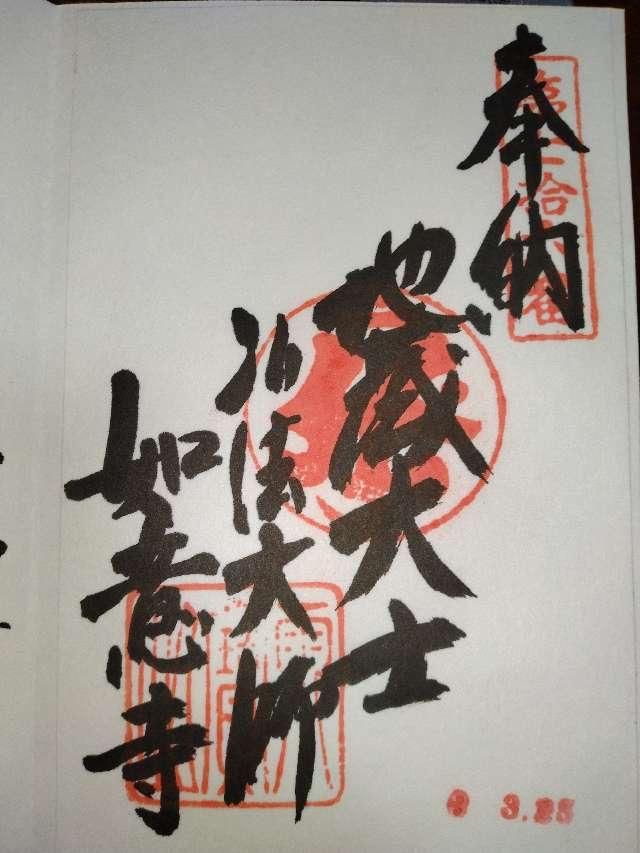 奉納
地蔵大士
弘法大師
如意寺
3.25